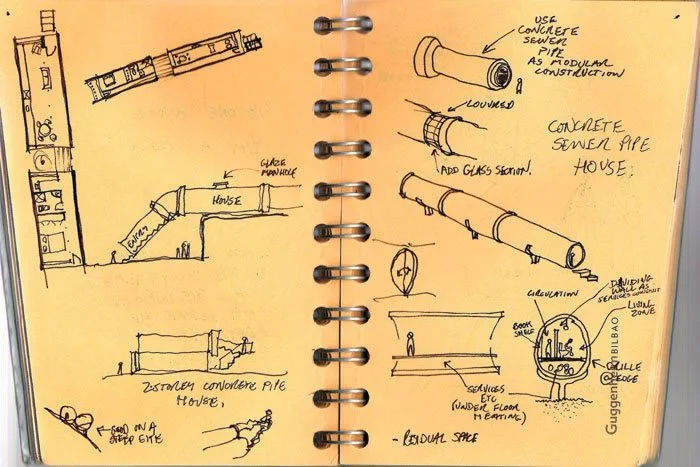 GLAZE
MANHOLE
HOUSE
ENTRY
2 STOREY CONCRETE PIPE
HOUSE.
GOOD ON A
STEEP SITE
USE
CONCRETE
SEWER
PIPE
AS MODULAR
CONSTRUCTION
LOUVRED
ADD GLASS SECTION.
CONCRETE
SEWER PIPE
HOUSE.
CIRCULATION
DIVIDING
WALL AS
SERVICES CONDUIT
LIVING
ZONE
BOOK
SHELF
GRILLE
@ EDGE
SERVICES
ETC
(UNDER FLOOR
HEATING)
- RESIDUAL SPACE
GuggenheimBILBAO